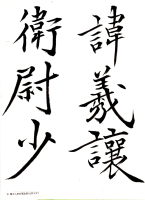 諱羲讓
衛尉少